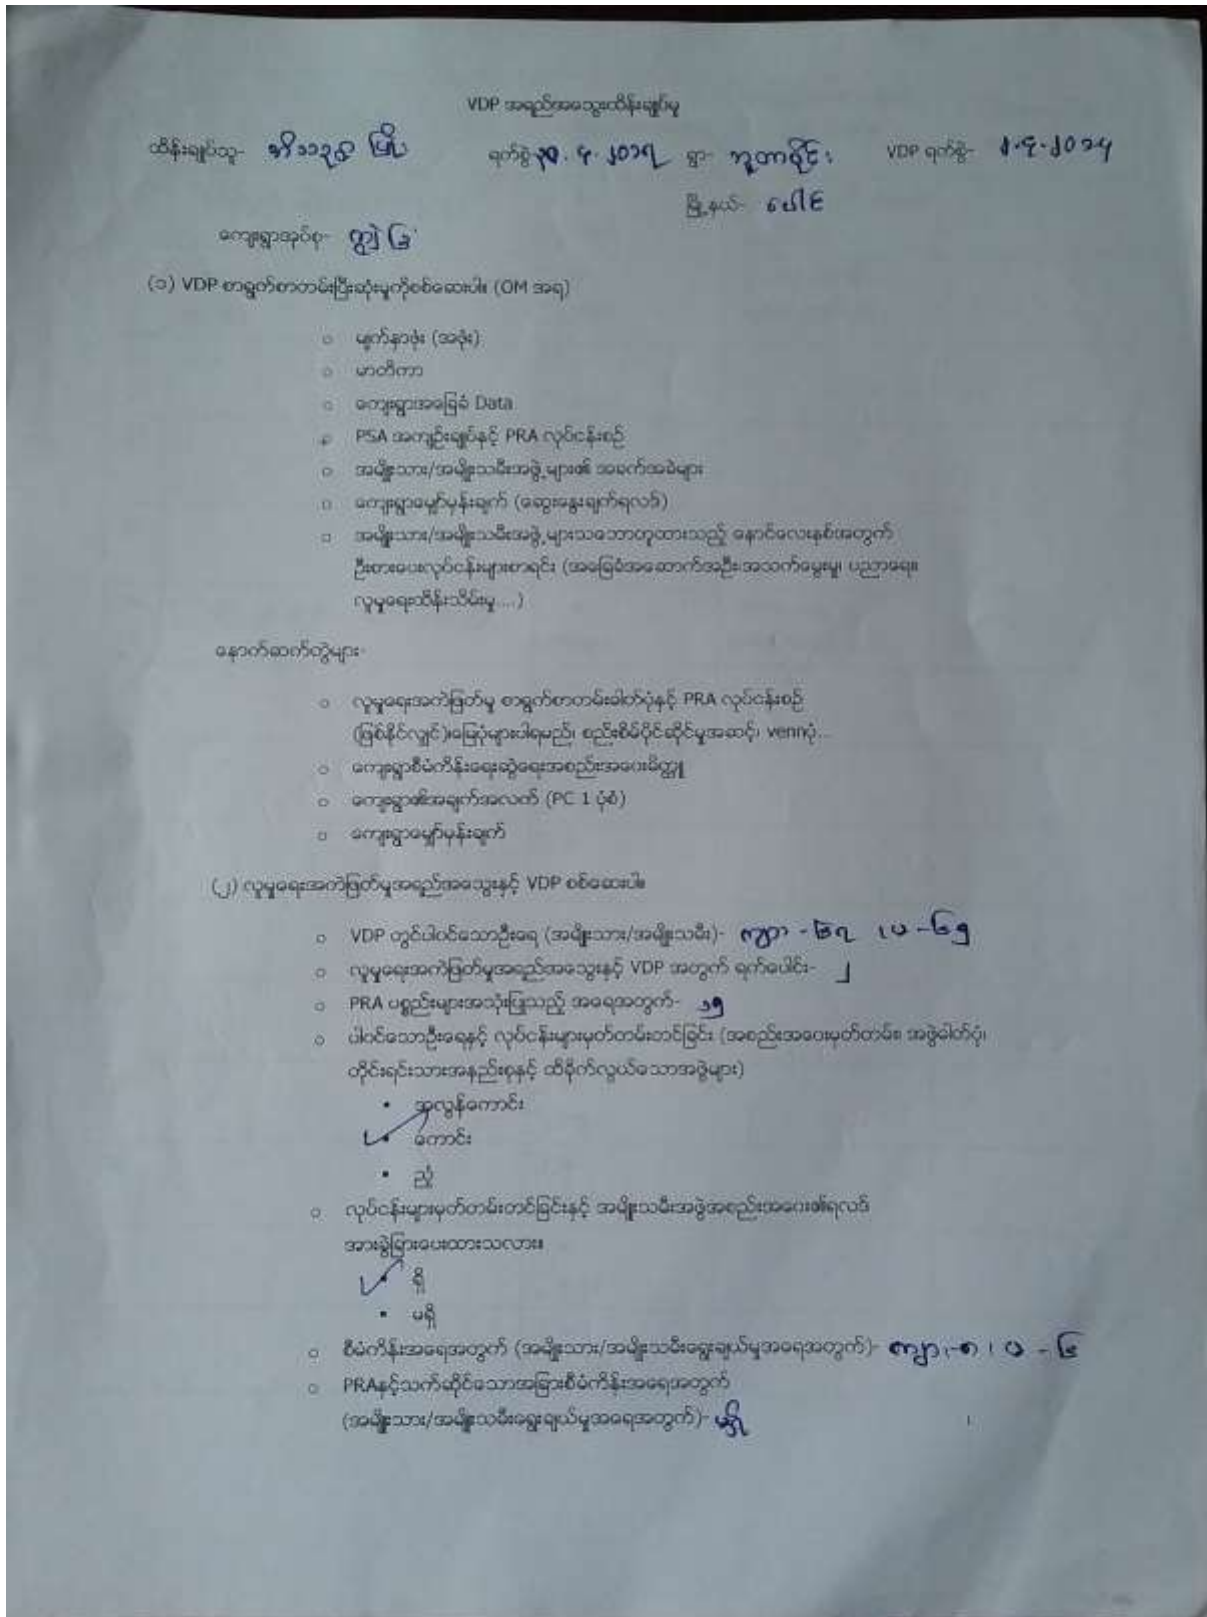 VDP အရည်အသွေးထိန်းချုပ်မှု
ထိန်းချုပ်သူ- ရက်စွဲ ရွာ- ဘူတာပိုင်း VDP ရက်စွဲ-
မြို့နယ်- ပေါင်
ကျေးရွာအုပ်စု- ကျွဲခြံ
(၁) VDP စာရွက်စာတမ်းပြီးဆုံးမှုကိုစစ်ဆေးပါ။ (OM အရ)
မျက်နှာဖုံး (အဖုံး)
မာတိကာ
ကျေးရွာအခြေခံ Data
PSA အကျဉ်းချုပ်နှင့် PRA လုပ်ငန်းစဉ်
အမျိုးသား/အမျိုးသမီးအဖွဲ့များ၏ အခက်အခဲများ
ကျေးရွာမျှော်မှန်းချက် (ဆွေးနွေးချက်ရလဒ်)
အမျိုးသား/အမျိုးသမီးအဖွဲ့များသဘောတူထားသည့် နောင်လေးနှစ်အတွက်
ဦးစားပေးလုပ်ငန်းများစာရင်း (အခြေခံအဆောက်အဦး၊အသက်မွေးမှု၊ ပညာရေး၊
လူမှုရေးထိန်းသိမ်းမှု....)
နောက်ဆက်တွဲများ-
လူမှုရေးအကဲဖြတ်မှု စာရွက်စာတမ်းဓါတ်ပုံနှင့် PRA လုပ်ငန်းစဉ်
(ဖြစ်နိုင်လျှင်)၊မြေပုံများပါရမည်၊ စည်းစိမ်ပိုင်ဆိုင်မှုအဆင့်၊ vennပုံ...
ကျေးရွာစီမံကိန်းရေးဆွဲရေးအစည်းအဝေးမိတ္တူ
ကျေးရွာ၏အချက်အလက် (PC 1 ပုံစံ)
ကျေးရွာမျှော်မှန်းချက်
(၂) လူမှုရေးအကဲဖြတ်မှုအရည်အသွေးနှင့် VDP စစ်ဆေးပါ။
VDP တွင်ပါဝင်သောဦးရေ (အမျိုးသား/အမျိုးသမီး)- ကျား - ၆၇ ၊ မ - ၆၅
လူမှုရေးအကဲဖြတ်မှုအရည်အသွေးနှင့် VDP အတွက် ရက်ပေါင်း- ၂
PRA ပစ္စည်းများအသုံးပြုသည့် အရေအတွက်- ၁၅
ပါဝင်သောဦးရေနှင့် လုပ်ငန်းများမှတ်တမ်းတင်ခြင်း (အစည်းအဝေးမှတ်တမ်း၊ အဖွဲ့ဓါတ်ပုံ၊
တိုင်းရင်းသားအနည်းစုနှင့် ထိခိုက်လွယ်သောအဖွဲ့များ)
အလွန်ကောင်း
ကောင်း
ညံ့
လုပ်ငန်းများမှတ်တမ်းတင်ခြင်းနှင့် အမျိုးသမီးအဖွဲ့အစည်းအဝေး၏ရလဒ်
အားခွဲခြားပေးထားသလား။
ရှိ
မရှိ
စီမံကိန်းအရေအတွက် (အမျိုးသား/အမျိုးသမီးရွေးချယ်မှုအရေအတွက်)- ကျား-၈ ၊ မ - ၆
PRAနှင့်သက်ဆိုင်သောအခြားစီမံကိန်းအရေအတွက်
(အမျိုးသား/အမျိုးသမီးရွေးချယ်မှုအရေအတွက်)- မရှိ